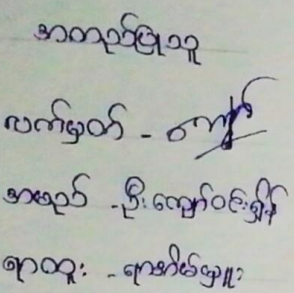 အတည်ပြုသူ
လက်မှတ် -
အမည် - ဦးကျော်ဝင်းရှိန်
ရာထူး -